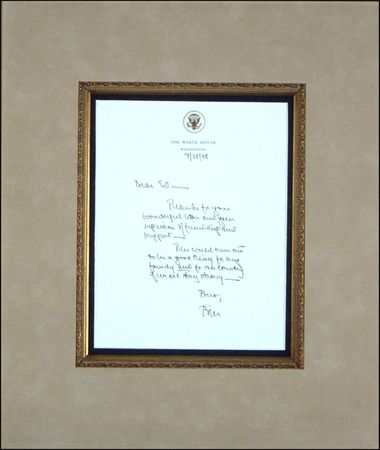 THE WHITE HOUSE
WASHINGTON
Dear Ed—
Thanks for your
wonderful letter and your
expression of friendship and
support—
This could turn out
to be a good thing for my
family and for our country
if we all stay strong—
Bill